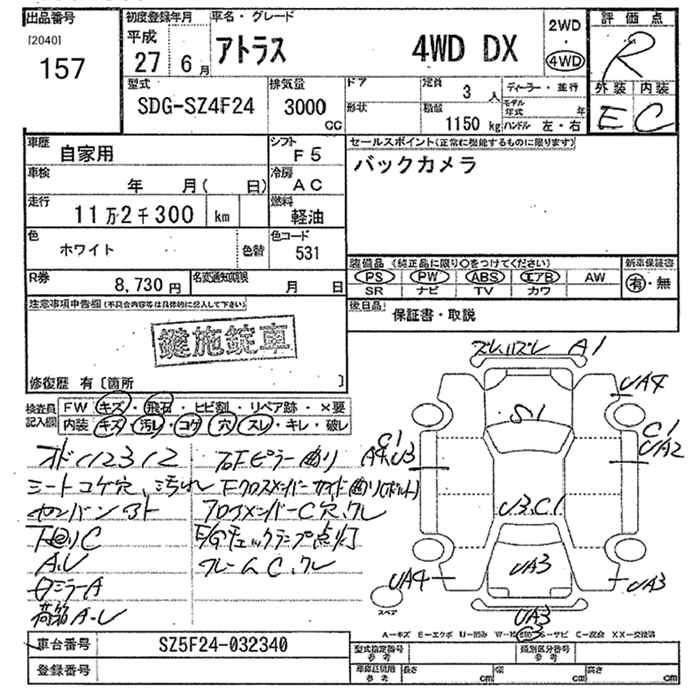 出品番号 初度登録年月 車名・グレード 評価点
[2040] 平成 2WD
157 27 6月 アトラス 4WD DX 4WD R
型式 排気量 ドア 定員 ディーラー・並行 外装 内装
SDG-SZ4F24 3000 3人 モデル年式 年 E C
CC 形状 積載 1150kg ハンドル 左・右
車歴 自家用 シフト F5 セールスポイント(正常に機能するものに限ります)
車検 年 月( 日) 冷房 AC バックカメラ
走行 11万2千300 km 燃料 軽油
色 ホワイト 色替 色コード 531
装備品 (純正品に限り○をつけてください) 新車保証書
R券 8,730円 名変通知期限 月 日 PS PW ABS エアB AW 有・無
SR ナビ TV カワ
注意事項申告欄(不具合内容等は具体的に記入して下さい) 後日品 保証書・取説
鍵施錠車
修復歴 有〔箇所 〕
ズレハズレ A1
UA4
検査員 FW キズ・飛石・ヒビ割・リペア跡・×要
記入欄 内装 キズ・汚レ・コゲ・穴・スレ・キレ・破レ
S1
C1 UA2
オド112312
シートコゲ穴、汚れ
U3.C1
下回りC
A.U
E/Gチェックランプ点灯
ミラーA フレームC、クレ
UA4 UA3 UA3
荷箱A.U
スペア UA3
車台番号 SZ5F24-032340
登録番号
型式指定番号 参考 類別区分番号 参考
長さ cm 幅 cm 高さ cm